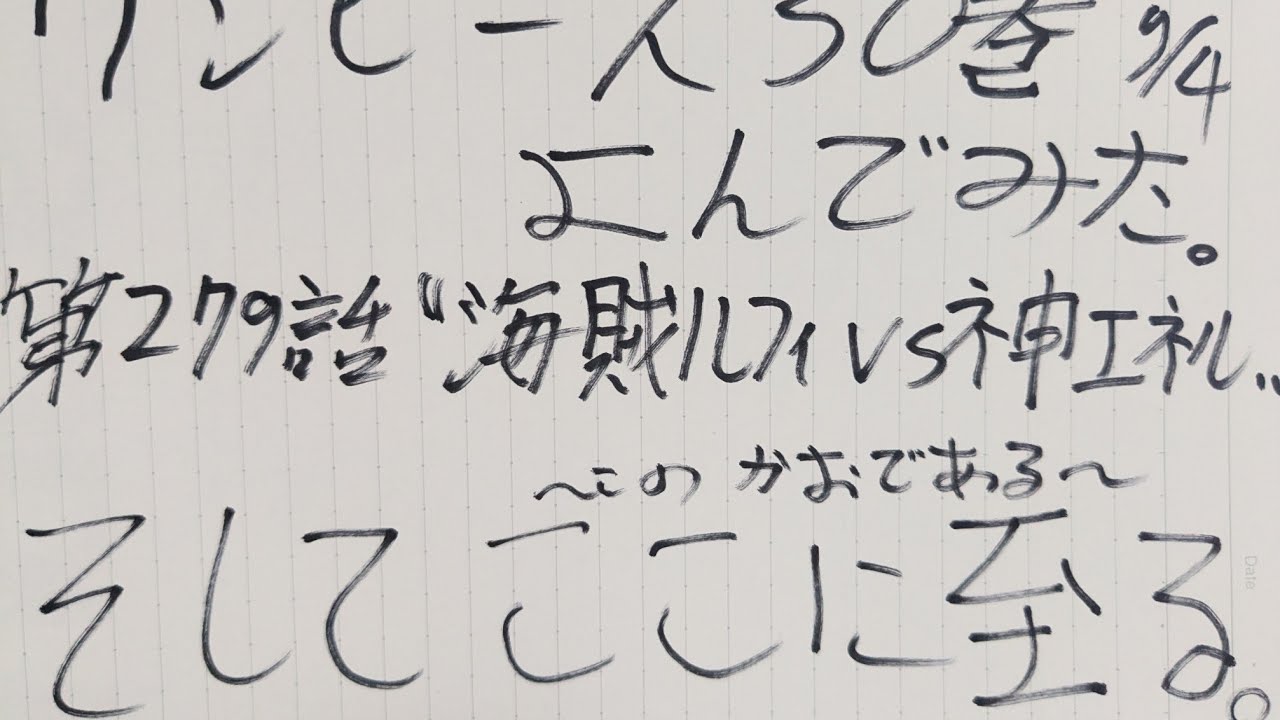 ワンピース30巻 9/4
よんでみた。
第279話“海賊ルフィvs神エネル”
〜このかおである〜
そしてここに至る。
Date